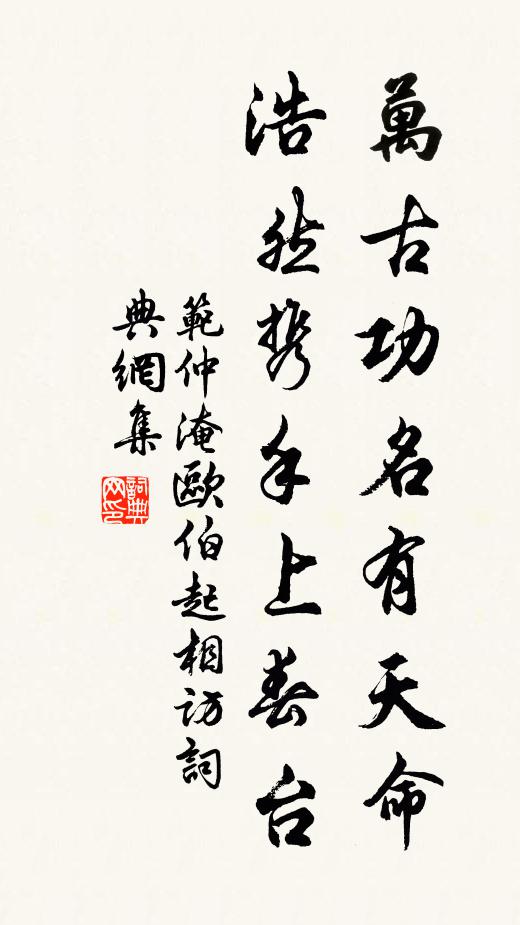 萬古功名有天命
浩然携手上春台
範仲淹歐伯起相訪詞
典網集
詞典
网印